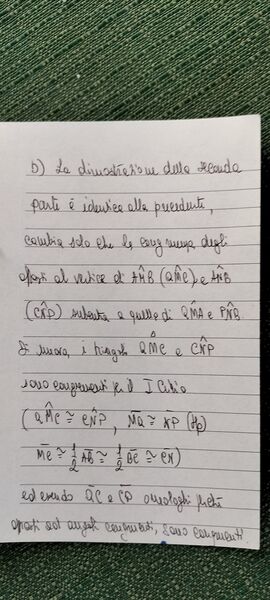 b) La dimostrazione della seconda
parte è identica alla precedente,
cambia solo che la congruenza degli
opposti al vertice di AM̂B (QM̂C) e AN̂B
(CN̂P) subentra a quella di QM̂A e PN̂B
Di nuovo, i triangoli QM̂C e CN̂P
sono congruenti per il I Criterio
(QM̂C ≅ CN̂P, M̄Q̄ ≅ N̄P̄ (Hp)
M̄C̄ ≅ 1/2 ĀB̄ ≅ 1/2 B̄C̄ ≅ C̄N̄)
ed essendo Q̄C̄ e C̄P̄ omologhi perché
opposti ad angoli congruenti, sono congruenti.